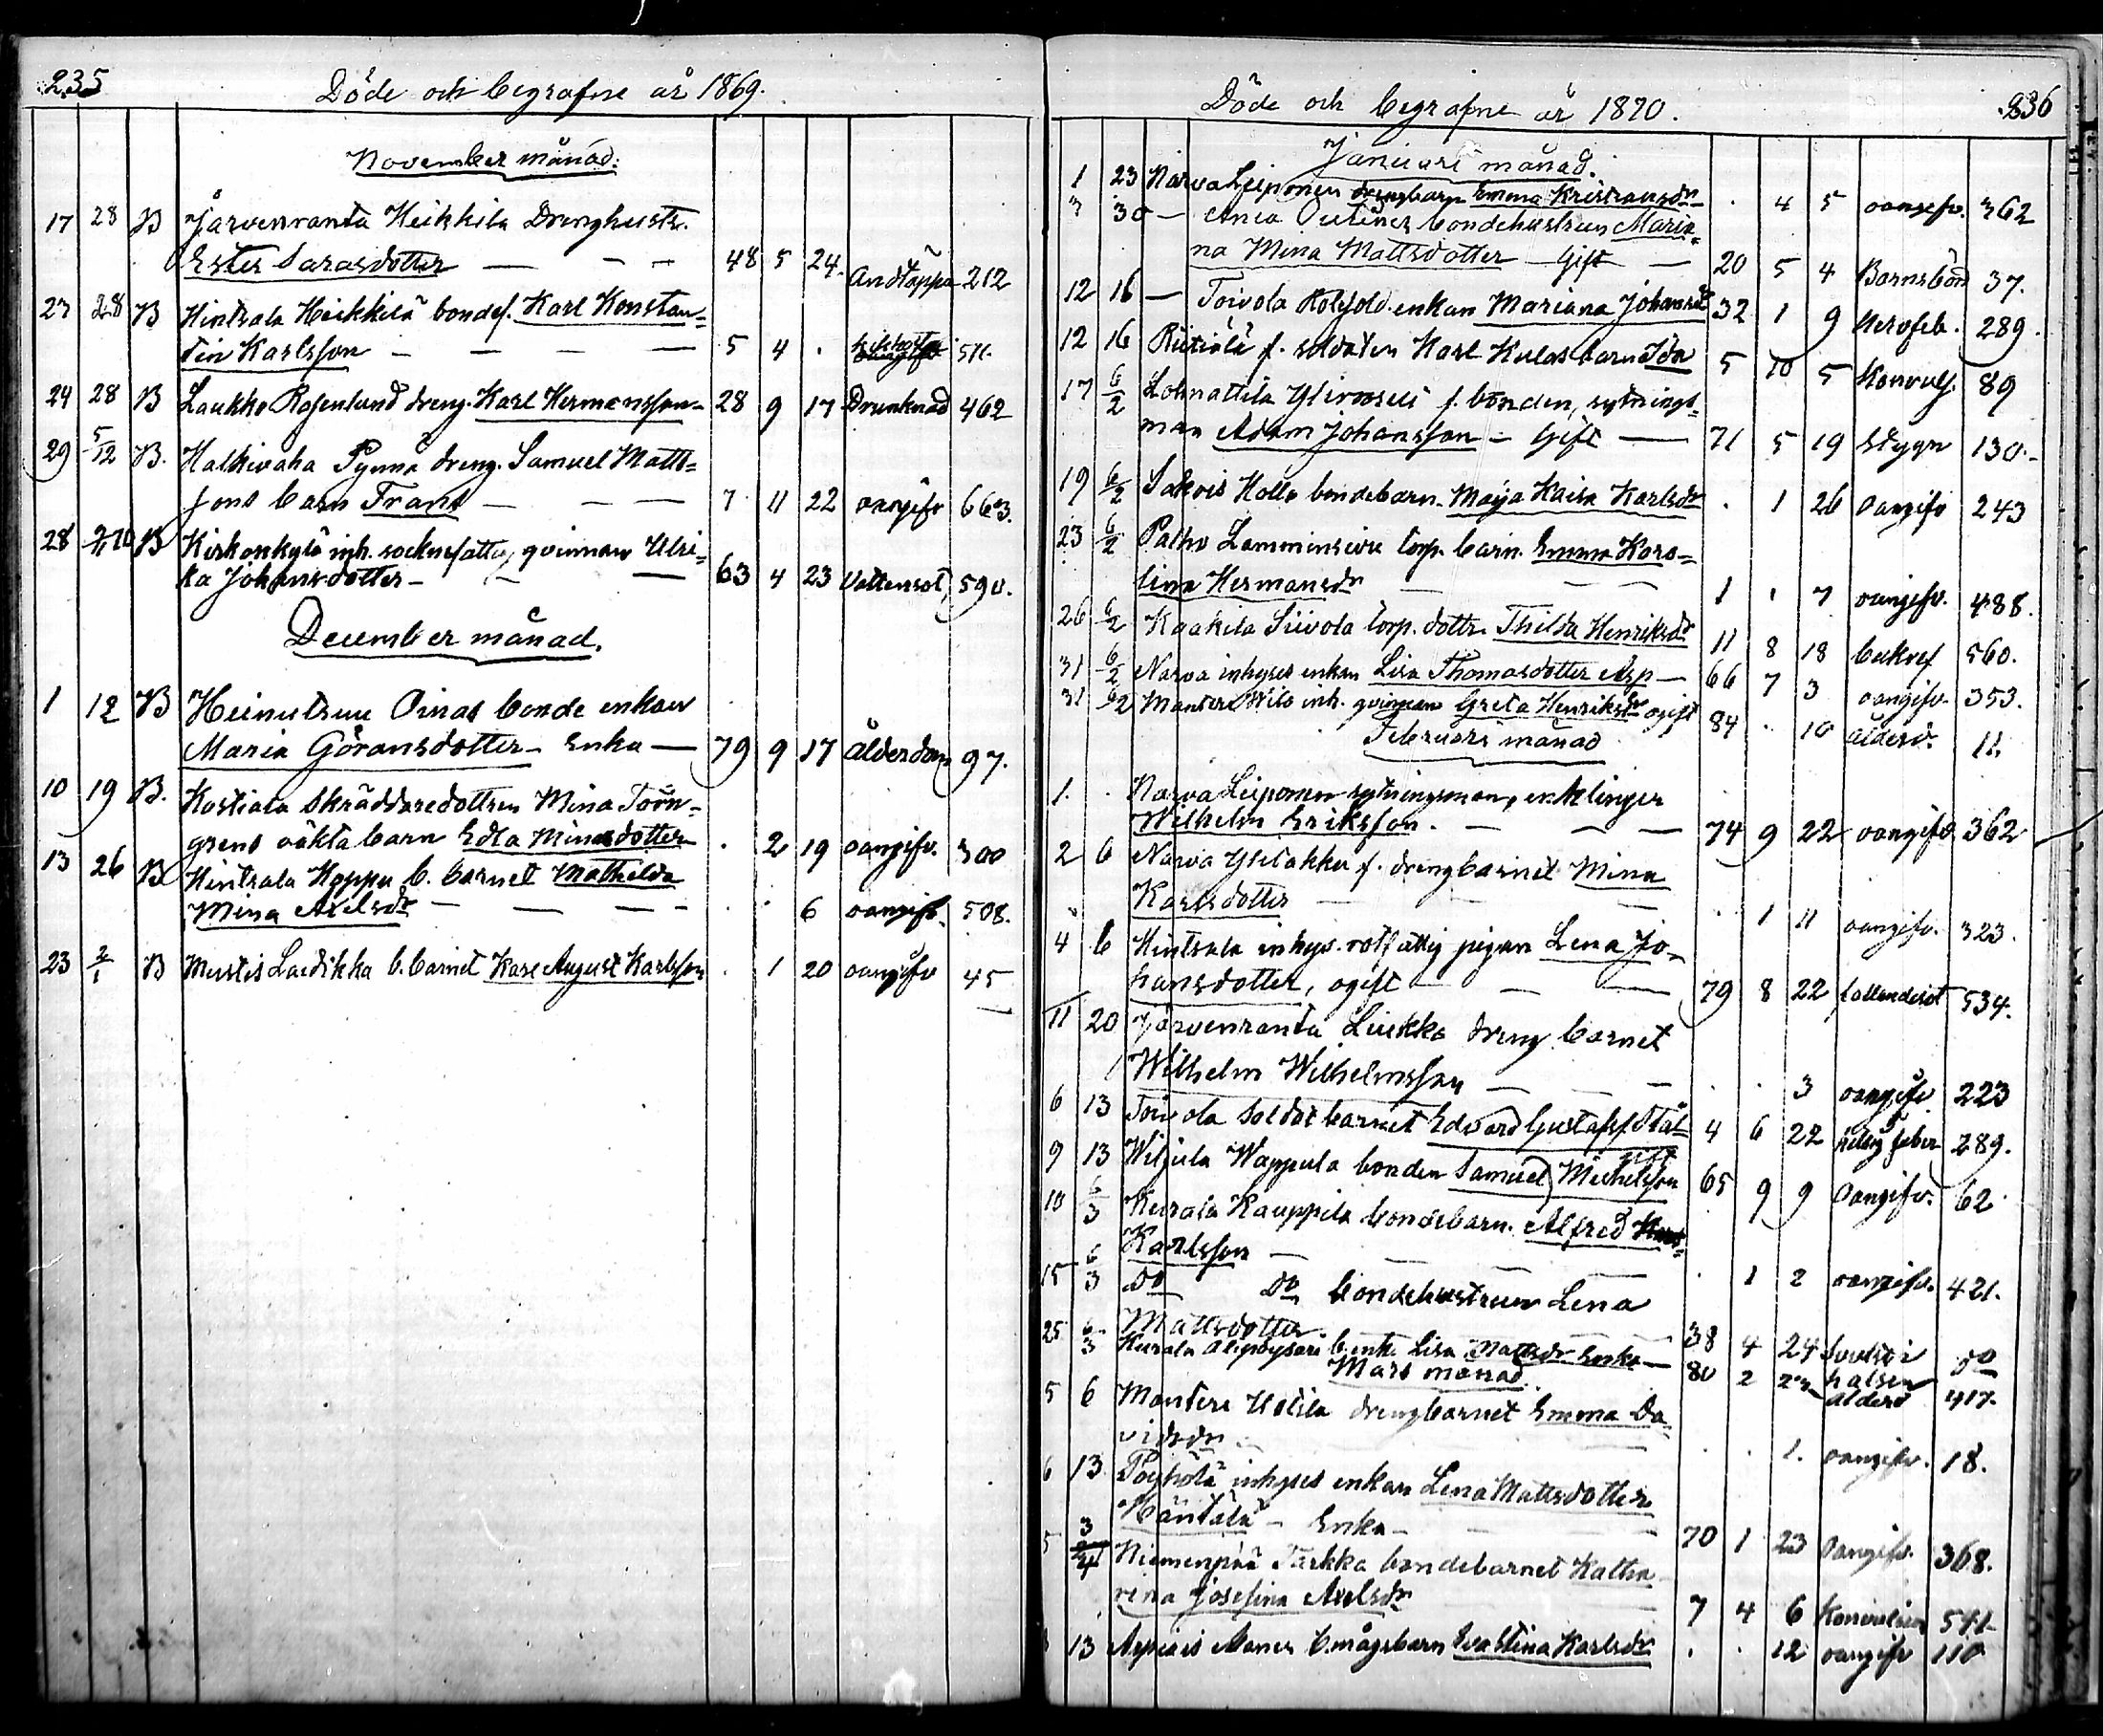 235
Döde och begrafne år 1869.
November månad.
17 28 B Järvenranta Heikkila Drenghustr.
Ester Sarasdotter — — — 48 5 24. Andtäppa 212
23 28 B Hintsala Heikkilä bondes. Karl Konstan-
tin Karlsson — — — — 5 4 . 511.
24 28 B Laukko Rosenlund dreng. Karl Hermansson 28 9 17 Drunknad 462
29 5/12 B. Halkivaha Pynnä dreng. Samuel Matts-
sons barn Frans — — — 7 11 22 oangifv 663.
28 B Kirkonkylä inh. socknefattig qvinnan Ulri-
ka Johansdotter — — — 63 4 23 Vattensot 590.
December månad.
1 12 B Heinutsuu Oinas bonde enkan
Maria Göransdotter — Enka — 79 9 17 Ålderdom 97.
10 19 B. Kostiala Skräddaredottren Mina Törn-
grens oäkta barn Edla Minasdotter . 2 19 oangifv. 300
13 26 B Hintsala Hoppu b. barnet Mathilda
Mina Axelsdr — — — — . . 6 oangifv. 508.
23 2/1 B Mustis Laidikka b. barnet Karl August Karlsson . 1 20 oangifv 45
236
Döde och begrafne år 1870.
Januari månad.
1 23 Narva Leiponen drengbarn Emma Kristiansdr . 4 5 oangifv. 362
3 30 — Ania Outinen bondehustrun Maria-
na Mina Mattsdotter — Gift — 20 5 4 Barnsbörd 37.
12 16 — Toivola enkan Mariana Johansdr 32 1 9 Nervfeb. 289.
12 16 f. soldaten Karl Kulas barn Ida 5 10 5 Konvuls. 89
17 6/2 Lohnattila f. bonden, sytnings-
man Adam Johansson — Gift — 71 5 19 Stygn 130.
19 6/2 Sakois Kolla bondebarn. Maija Kaisa Karlsdr . 1 26 oangifv 243
23 6/2 Palho Lamminsivu torp. barn. Emma Karo-
lina Hermansdr — — 1 1 7 oangifv. 488.
26 6/2 Kaakila Siivola torp. dottr. Thilda Henriksdr 11 8 18 560.
31 6/2 Narva inhyses enkan Lisa Thomasdotter Asp — 66 7 3 oangifv. 353.
31 6/2 Mantere Wilo inh. qvinnan Greta Henriksdr ogift 84 . 10 ålderd. 11.
Februari månad
1. . Narva Leiponen sytningsman, enklingen
Wilhelm Eriksson. — — — 74 9 22 oangifv 362
2 6 Narva Ylitakku f. drengbarnet Mina
Karlsdotter — — — . 1 11 oangifv. 323.
4 6 Hintsala inhys. rotfattig pigan Lena Jo-
hansdotter, ogift — — — 79 8 22 fallandesot 534.
11 20 Järvenranta Liukka dreng barnet
Wilhelm Wilhelmsson — — . . 3 oangifv 223
6 13 Toivola Soldat barnet Edvard Gustafss. Stål 4 6 22 feber 289.
gift
9 13 Wiljula Wappula bonden Samuel Michelsson 65 9 9 oangifv. 62
10 6/3 Kurala Kauppila bondebarn. Alfred
Karlsson — — — . 1 2 oangifv. 421.
15 6/3 do do bondehustrun Lena
Mattsdotter. — 38 4 24 Svulst i do
halsen
25 6/3 Kurala Alipoysari b. enk. Lisa Mattsdr Enka — 80 2 23 ålderd 417.
Mars månad.
5 6 Mantere Uotila drengbarnet Emma Da-
vidsdr. — — . . 1. oangifv. 18.
6 13 Poyhölä inhyses enkan Lena Mattsdotter
Mäntälä — Enka — — — 70 1 23 oangifv. 368.
5 3/4 Niemenpää Tarkka bondebarnet Katha-
rina Josefina Axelsdr — 7 4 6 Konvulsion 541
13 b. mågsbarn Eva Stina Karlsdr . . 12 oangifv 110